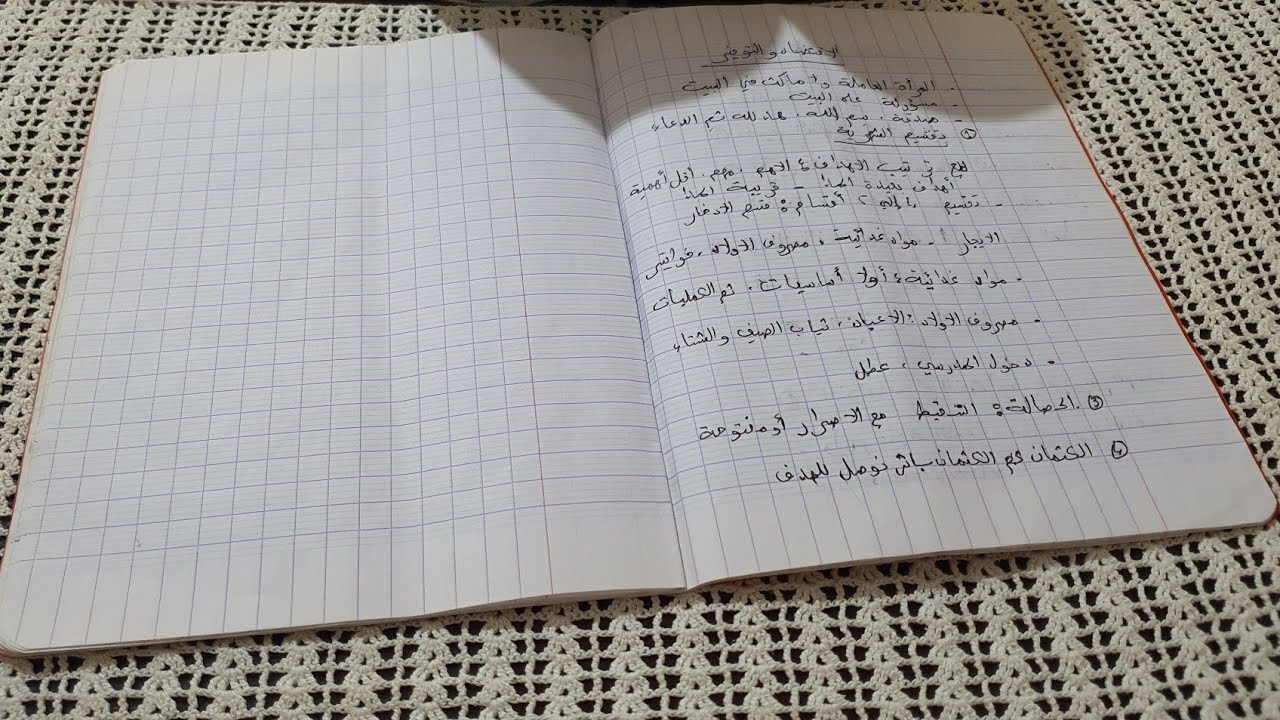 الاقتصاد والتوفير
- المرأة العاملة و الماكث في البيت
- مسؤولة على البيت
- صدقة، بسم الله، هاد لله ثم الدعاء
① تقسيم الشهرية
مع ترتيب الاهداف: الاهم، مهم، أقل أهمية
أهداف بعيدة المدا - قريبة المدا
- تقسيم المالي أقسام: قسم الادخار
الايجار، مواد غدائية، مصروف الاولاد، فواتير
- مواد غدائية: أولا أساسيات، ثم الكمليات
- مصروف الاولاد: الاعياد، ثياب الصيف والشتاء
- دخول المدرسي، عطل
③ الحصالة: التنقيط مع الاصرار أو مفتوحة
④ الكتمان ثم الكتمان باش نوصل للهدف